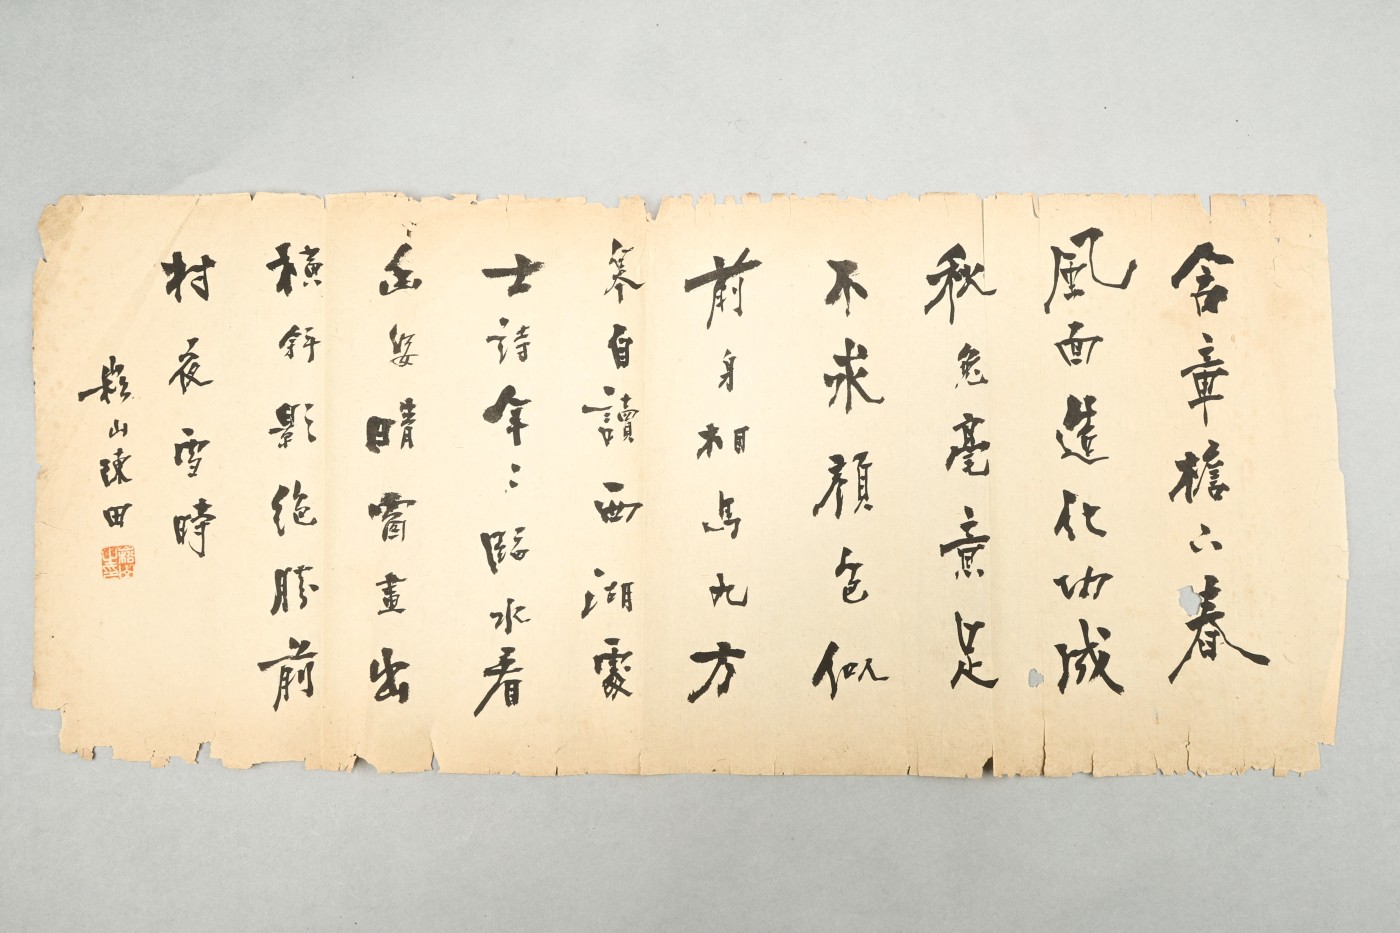 含章檐下春
風面造化功成
秋兔毫意足
不求顏色似
前身相馬九方
皋自讀西湖處
士詩年〻臨水看
幽姿晴窗畫出
橫斜影絕勝前
村夜雪時
崧山陳田